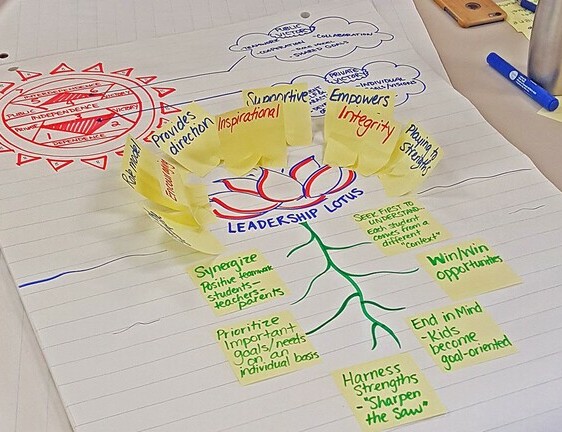 PUBLIC
VICTORY
TEAMWORK
- COLLABORATION
- COOPERATION
- SHARED GOALS
PRIVATE
VICTORY
- INDIVIDUAL
INTERDEPENDENCE
PUBLIC
VICTORY
INDEPENDENCE
PRIVATE
VICTORY
DEPENDENCE
Role model
Encourag
Provides
direction
Inspirational
Supportive
Empowers
Integrity
Playing to
Strengths
LEADERSHIP LOTUS
SEEK FIRST TO
UNDERSTAND
Each student
comes from a
different
"context"
Synergize
Positive teamwork
students-
teachers-
parents
Win/Win
opportunities
Prioritize
Important
goals/needs
on an
individual basis
End in Mind
- Kids
become
goal-oriented
Harness
Strengths
- "Sharpen
the Saw"